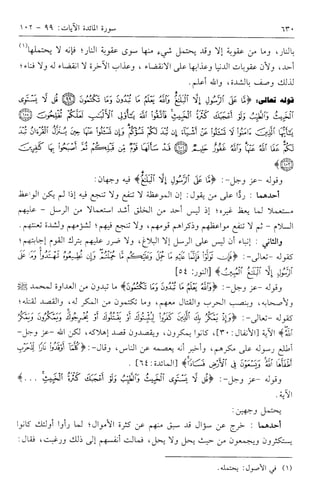 ٦٣٠ سورة المائدة الآيات: ٩٩ - ١٠٢
بالنار، وما من عقوبة إلا وقد يحتمل شيء منها سوى عقوبة النار؛ فإنه لا يحتملها(١)
أحد، ولأن عقوبات الدنيا وعذابها على الانقضاء، وعذاب الآخرة لا انقضاء له ولا فناء؛
لذلك وصف بالشدة، والله أعلم.
قوله تعالى: ﴿مَّا عَلَى ٱلرَّسُولِ إِلَّا ٱلْبَلَٰغُ وَٱللَّهُ يَعْلَمُ مَا تُبْدُونَ وَمَا تَكْتُمُونَ ۝ قُل لَّا يَسْتَوِى
ٱلْخَبِيثُ وَٱلطَّيِّبُ وَلَوْ أَعْجَبَكَ كَثْرَةُ ٱلْخَبِيثِ فَٱتَّقُوا۟ ٱللَّهَ يَٰٓأُو۟لِى ٱلْأَلْبَٰبِ لَعَلَّكُمْ تُفْلِحُونَ ۝
يَٰٓأَيُّهَا ٱلَّذِينَ ءَامَنُوا۟ لَا تَسْـَٔلُوا۟ عَنْ أَشْيَآءَ إِن تُبْدَ لَكُمْ تَسُؤْكُمْ وَإِن تَسْـَٔلُوا۟ عَنْهَا حِينَ يُنَزَّلُ ٱلْقُرْءَانُ تُبْدَ
لَكُمْ عَفَا ٱللَّهُ عَنْهَا وَٱللَّهُ غَفُورٌ حَلِيمٌ ۝ قَدْ سَأَلَهَا قَوْمٌ مِّن قَبْلِكُمْ ثُمَّ أَصْبَحُوا۟ بِهَا كَٰفِرِينَ
۝﴾
وقوله -عز وجل-: ﴿مَّا عَلَى ٱلرَّسُولِ إِلَّا ٱلْبَلَٰغُ﴾ فيه وجهان:
أحدهما: ردًّا على من يقول: إن الموعظة لا تنفع ولا تنجع فيه إذا لم يكن الواعظ
مستعملا لما يعظ غيره؛ إذ ليس أحد من الخلق أشد استعمالا من الرسل - عليهم
السلام - ثم لا تنفع مواعظهم وذكراهم قومهم، ولا تنجع فيهم؛ لشؤمهم ولشدة تعنتهم.
والثاني: إنباء أن ليس على الرسل إلا البلاغ، ولا ضرر عليهم بترك القوم إجابتهم؛
كقوله -تعالى-: ﴿فَإِنَّمَا عَلَيْهِ مَا حُمِّلَ وَعَلَيْكُم مَّا حُمِّلْتُمْ وَإِن تُطِيعُوهُ تَهْتَدُوا۟ وَمَا عَلَى
ٱلرَّسُولِ إِلَّا ٱلْبَلَٰغُ ٱلْمُبِينُ﴾ [النور: ٥٤]
وقوله -عز وجل-: ﴿وَٱللَّهُ يَعْلَمُ مَا تُبْدُونَ وَمَا تَكْتُمُونَ﴾ ما تبدون من العداوة لمحمد ﷺ
ولأصحابه، وبنصب الحرب والقتال معهم، وما تكتمون من المكر له، والقصد لقتله؛
كقوله -تعالى-: ﴿وَإِذْ يَمْكُرُ بِكَ ٱلَّذِينَ كَفَرُوا۟ لِيُثْبِتُوكَ أَوْ يَقْتُلُوكَ أَوْ يُخْرِجُوكَ وَيَمْكُرُونَ وَيَمْكُرُ
ٱللَّهُ﴾ الآية [الأنفال: ٣٠]، كانوا يمكرون، ويقصدون قصد إهلاكه، لكن الله -عز وجل-
أطلع رسوله على مكرهم، وأخبر أنه يعصمه عن الناس، وقال-: ﴿كُلَّمَآ أَوْقَدُوا۟ نَارًا لِّلْحَرْبِ
أَطْفَأَهَا ٱللَّهُ وَيَسْعَوْنَ فِى ٱلْأَرْضِ فَسَادًا﴾ [المائدة: ٦٤].
وقوله -عز وجل-: ﴿قُل لَّا يَسْتَوِى ٱلْخَبِيثُ وَٱلطَّيِّبُ وَلَوْ أَعْجَبَكَ كَثْرَةُ ٱلْخَبِيثِ ...﴾
الآية.
يحتمل وجهين:
أحدهما: خرج عن سؤال قد سبق منهم عن كثرة الأموال؛ لما رأوا أولئك كانوا
يستكثرون ويجمعون من حيث يحل ولا يحل، فمالت أنفسهم إلى ذلك ورغبت، فقال:
(١) في الأصول: يحتمله.